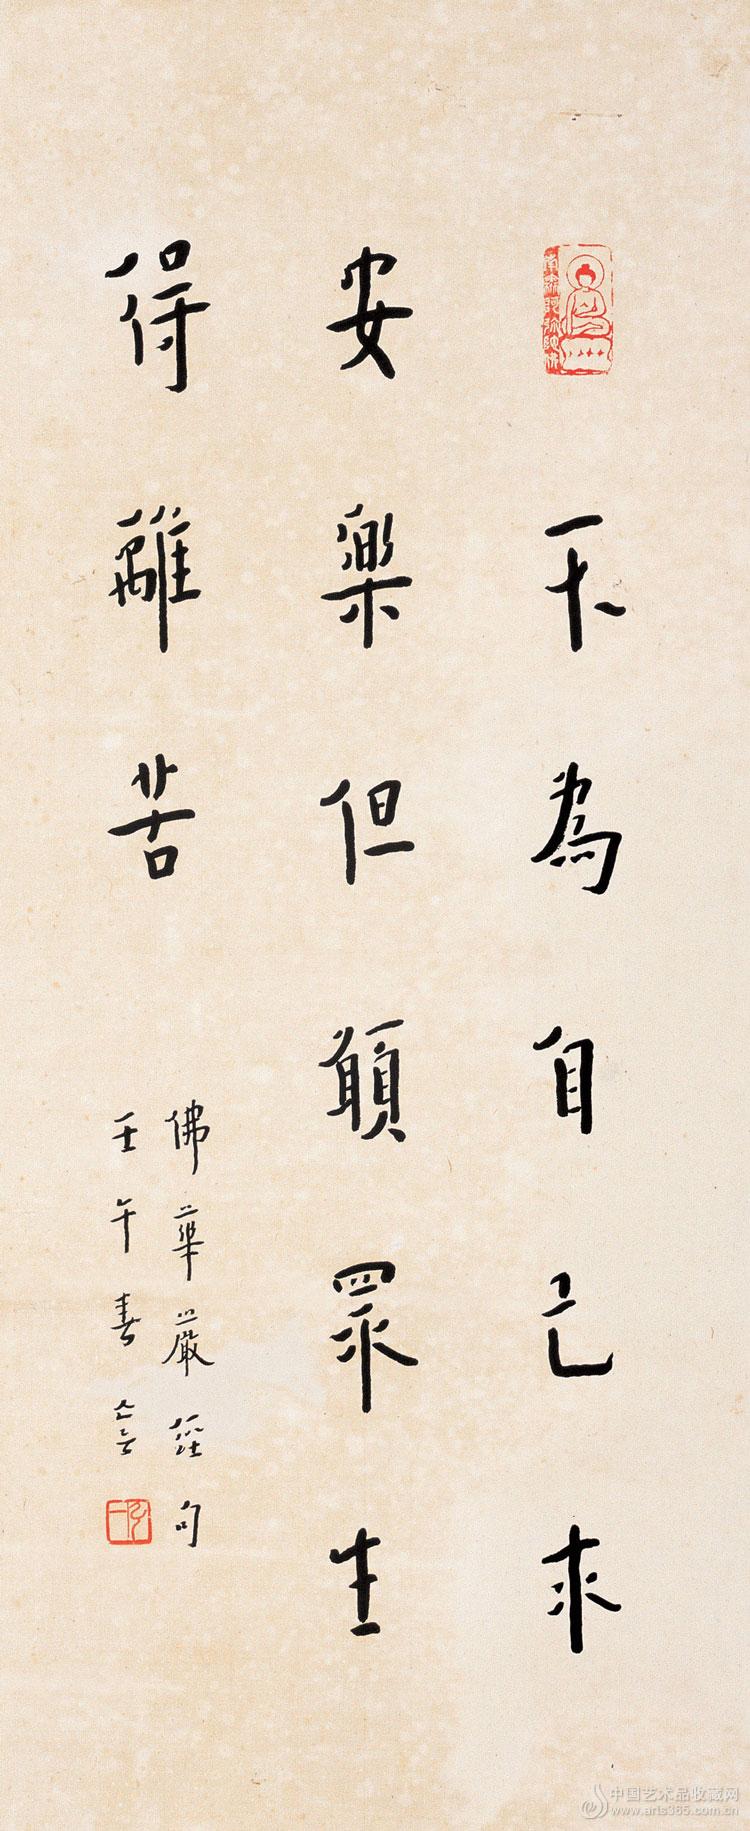 南無阿彌陀佛
不為自己求
安樂但願眾生
得離苦
佛華嚴經句
壬午春
弘一
中国艺术品收藏网
www.arts365.com.cn